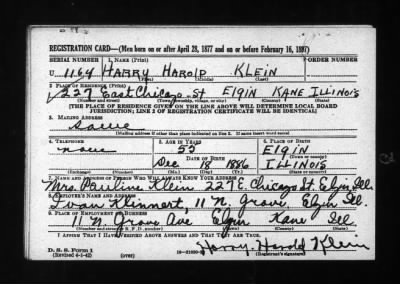 REGISTRATION CARD—(Men born on or after April 28, 1877 and on or before February 16, 1897)
SERIAL NUMBER 1. NAME (Print) ORDER NUMBER
U 1164 HARRY HAROLD KLEIN
(First) (Middle) (Last)
2. PLACE OF RESIDENCE (Print)
227 East Chicago St ELGIN KANE ILLINOIS
(Number and street) (Town, township, village, or city) (County) (State)
[THE PLACE OF RESIDENCE GIVEN ON THE LINE ABOVE WILL DETERMINE LOCAL BOARD
JURISDICTION; LINE 2 OF REGISTRATION CERTIFICATE WILL BE IDENTICAL]
3. MAILING ADDRESS
Same
[Mailing address if other than place indicated on line 2. If same insert word same]
4. TELEPHONE 5. AGE IN YEARS 6. PLACE OF BIRTH
none 55 ELGIN
DATE OF BIRTH (Town or county)
Dec 18 1886 ILLINOIS
(Exchange) (Number) (Mo.) (Day) (Yr.) (State or country)
7. NAME AND ADDRESS OF PERSON WHO WILL ALWAYS KNOW YOUR ADDRESS
Mrs. Pauline Klein 227 E. Chicago St. Elgin Ill.
8. EMPLOYER'S NAME AND ADDRESS
Ivan Klinnert, 11 N. Grove, Elgin Ill.
9. PLACE OF EMPLOYMENT OR BUSINESS
11 N. Grove Ave Elgin Kane Ill
(Number and street or R. F. D. number) (Town) (County) (State)
I AFFIRM THAT I HAVE VERIFIED ABOVE ANSWERS AND THAT THEY ARE TRUE.
Harry Harold Klein
D. S. S. Form 1
(Revised 4-1-42) (over) (Registrant's signature)